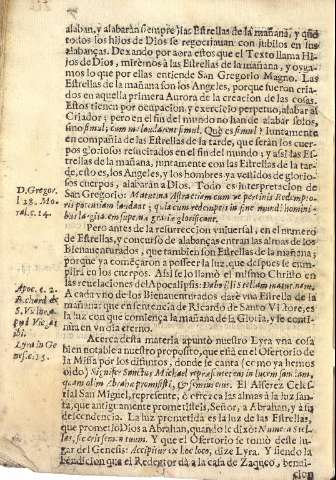 alaban, y alabaràn siempre las Estrellas de la mañana, y que
todos los hijos de Dios se regocijauan con jubilos en sus
alabanças. Dexando por aora estos que el Texto llama Hi-
jos de Dios, mirèmos à las Estrellas de la mañana, y oyga-
mos lo que por ellas entiende San Gregorio Magno. Las
Estrellas de la mañana son los Angeles, porque fueron cria-
dos en aquella primera Aurora de la creacion de las cosas.
Estos tienen por ocupacion, y exercicio perpetuo, alabar al
Criador; pero en el fin del mundo no han de alabar solos,
sino simul; cum me laudarent simul. Què es simul? Iuntamente
en compañia de las Estrellas de la tarde, que seràn los cuer-
pos gloriosos resucitados en el fin del mundo; y assi las Es-
trellas de la mañana, juntamente con las Estrellas de la tar-
de, esto es, los Angeles, y los hombres ya vestidos de glorio-
sos cuerpos, alabaràn à Dios. Todo es interpretacion de
San Gregorio: Matutina Astra etiam cum vespertinis Redempto-
ris potentiam laudant: quia cum redempti in fine mundi homini-
bus largitas superna gratia glorificant.
D. Gregor.
l. 28. Mo-
ral. c. 14.
Pero antes de la resurreccion vniuersal, en el numero
de Estrellas, y concurso de alabanças entran las almas de los
bienauenturados, que tambien son Estrellas de la mañana,
porque ya començaron à posseer la luz, que despues se cum-
plirà en los cuerpos. Assi se lo llamò el mismo Christo en
las reuelaciones del Apocalipsis: Dabo illi stellam matutinam.
A cada vno de los Bienauenturados darè vna Estrella de la
mañana; que en sentencia de Ricardo de Santo Victore, es
la luz con que comiença la mañana de la Gloria, y se conti-
nua en vn dia eterno.
Apoc. c. 2.
Richard. de
S. Victore,
apud Viegas
ibi.
Acerca desta materia apuntò nuestro Lyra vna cosa
bien notable a nuestro proposito, que està en el Ofertorio de
la Missa por los difuntos, donde se canta (como ya hemos
oido) Signifer Sanctus Michael repræsentet eas in lucem sanctam,
quam olim Abrahæ promisisti, & semini eius. El Alferez Celes-
tial San Miguel, represente, ò ofrezca las almas à la luz san-
ta, que antiguamente prometisteis, Señor, a Abrahan, y à su
descendencia. La luz prometida es la luz de las Estrellas,
que prometiò Dios a Abrahan, quando le dixo: Numera stel-
las, sic erit semen tuum. Y que el Ofertorio se tomò deste lu-
gar del Genesis: Accipitur ex hoc loco, dize Lyra. Y siendo la
bendicion que el Redentor dà a la casa de Zaqueo, bendi-
cion
Lyra in Ge-
nes. c. 15.